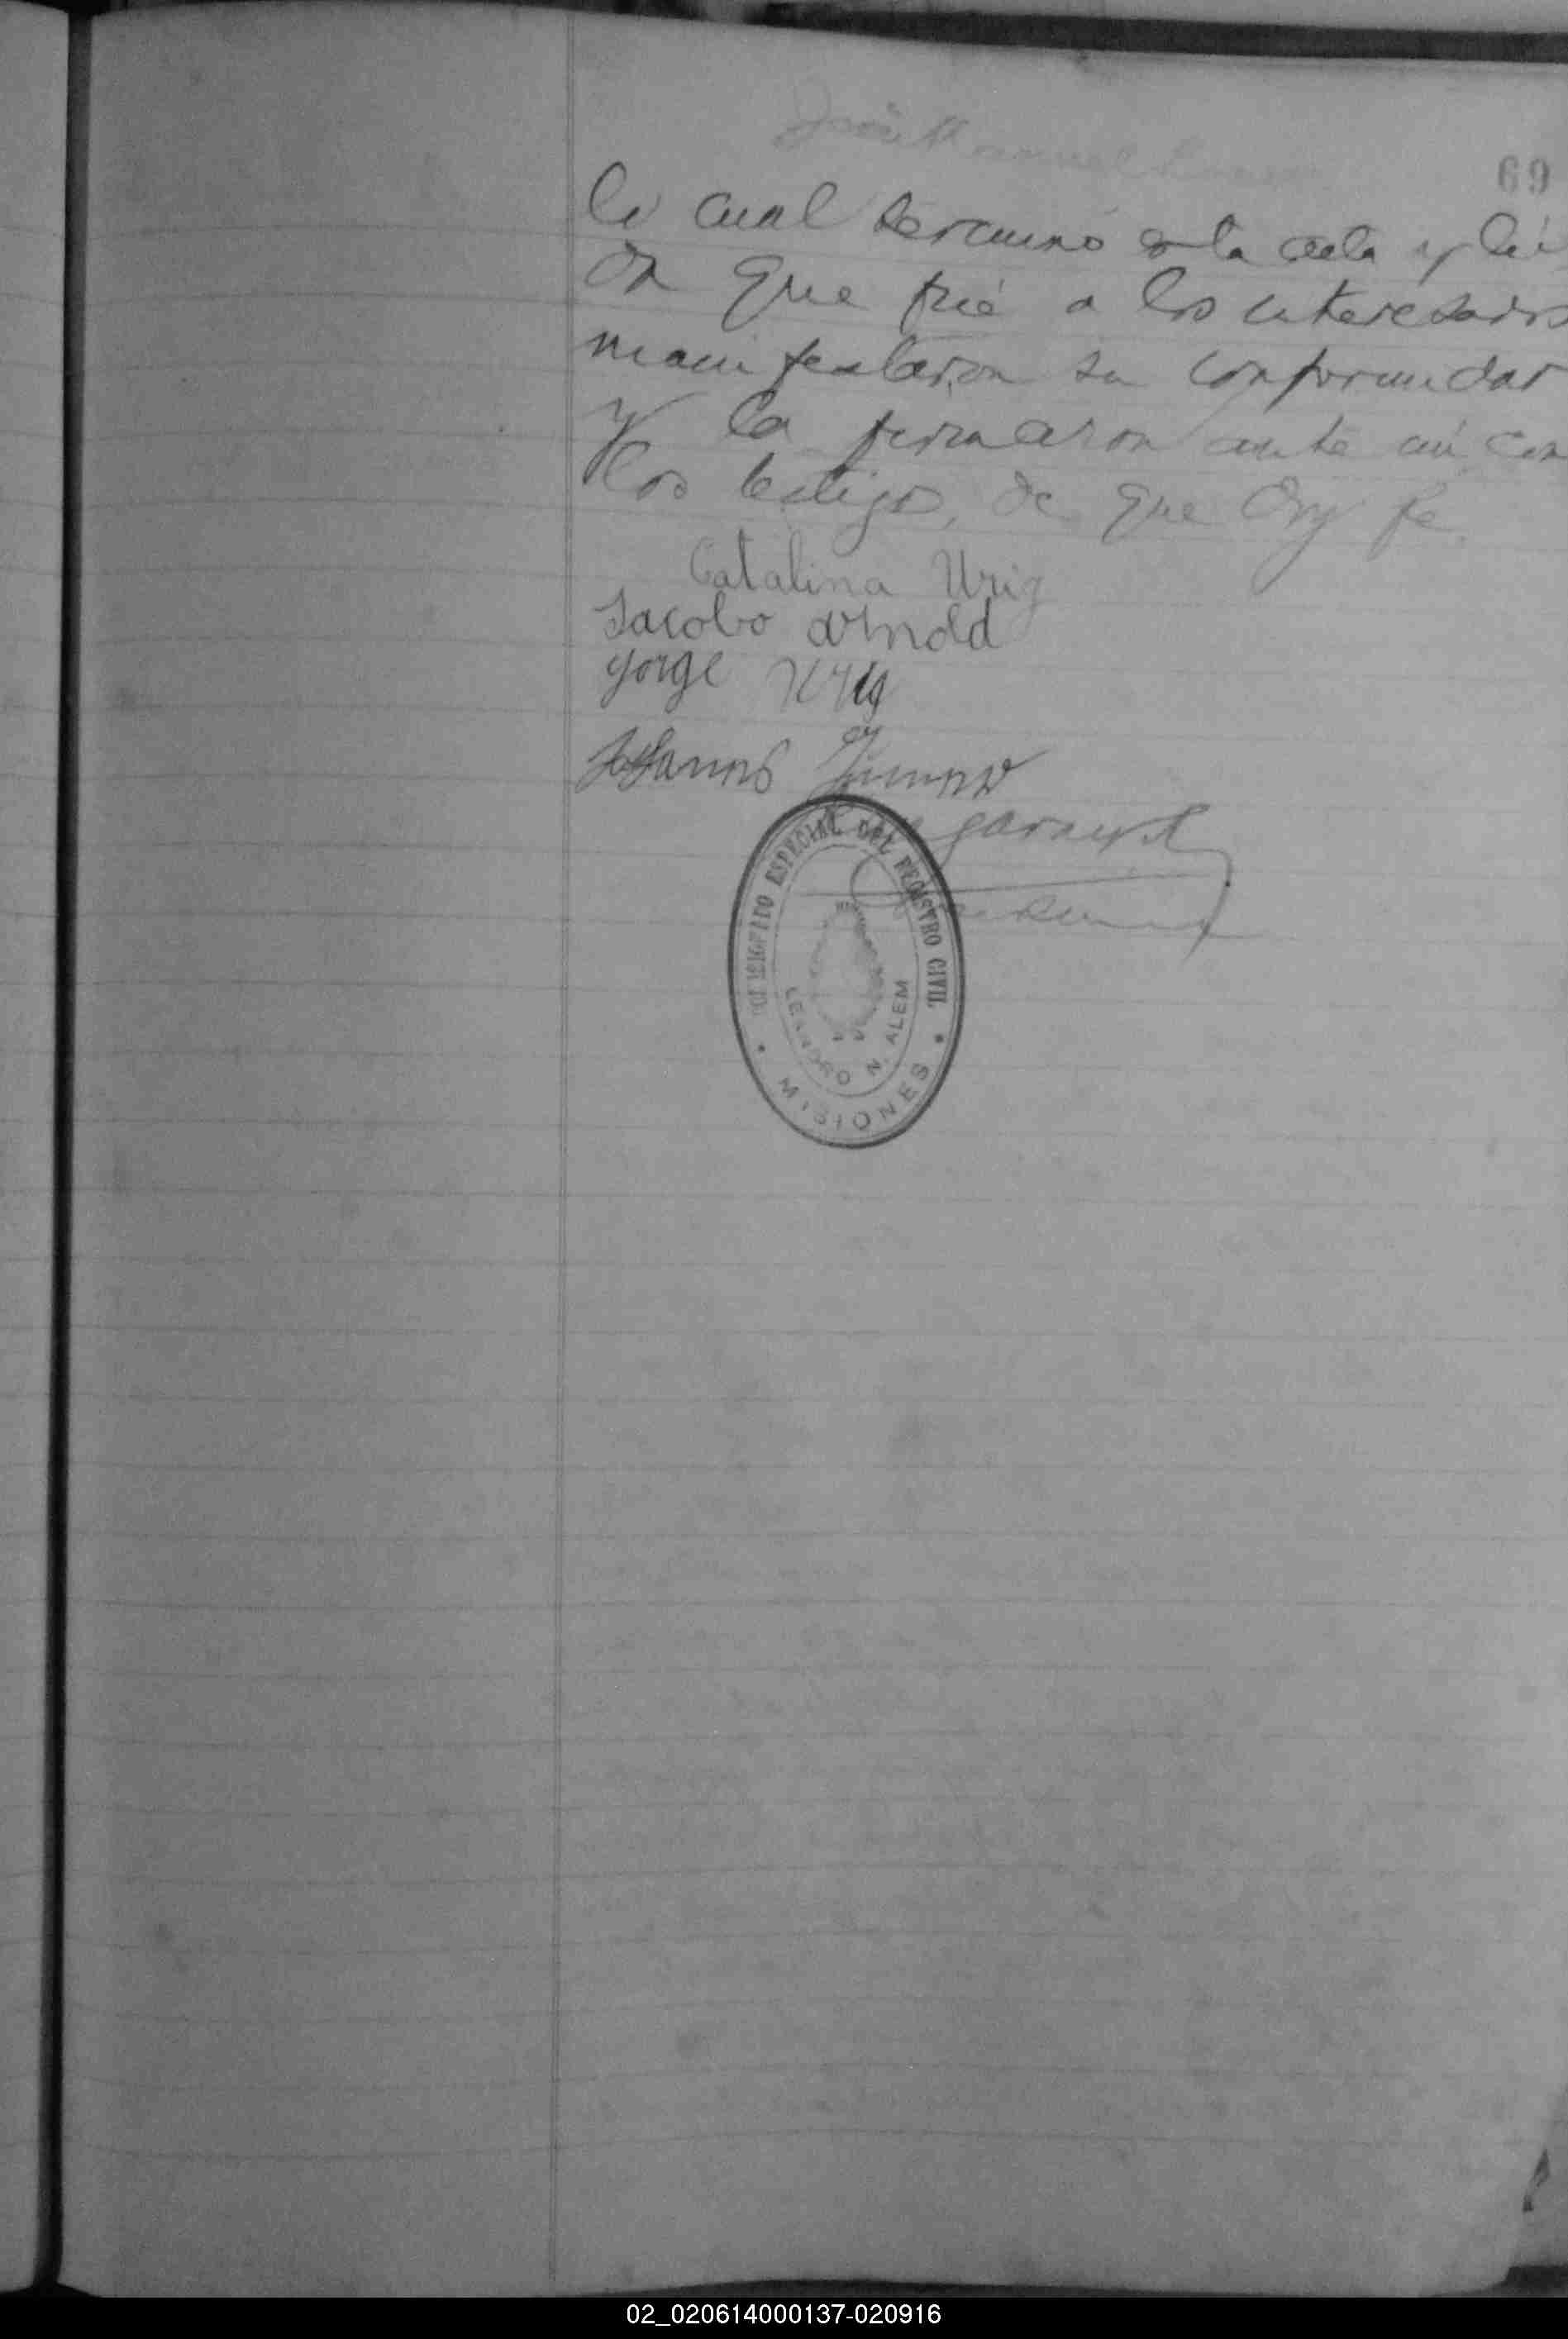 José Manuel
69
lo cual terminó esta acta y leí
da que fué a los interesados
manifestaron su conformidad
y la firmaron ante mí con
los testigos, de que doy fe.
Catalina Urig
Jacobo Arnold
Jorge Urig
Johannes
ESPECIAL DEL REGISTRO CIVIL
LEANDRO N. ALEM
MISIONES
02_020614000137-020916